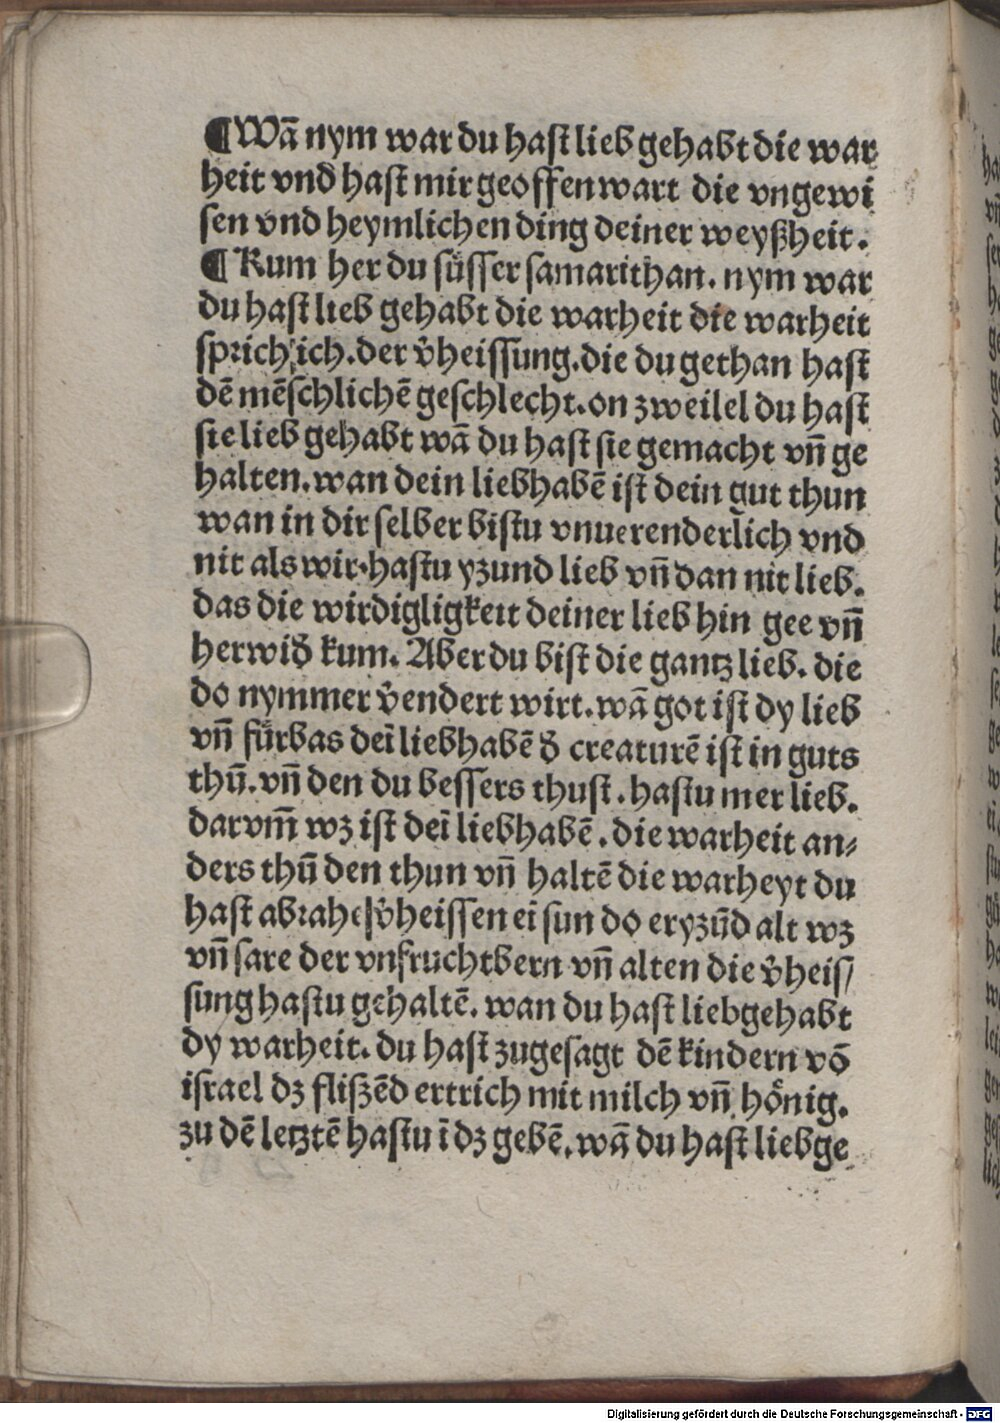 ¶Wā nym war du hast lieb gehabt die war
heit vnd hast mir geoffenwart die vngewi
sen vnd heymlichen ding deiner weyßheit.
¶Kum her du süsser samarithan. nym war
du hast lieb gehabt die warheit die warheit
sprich ich. der v̄heissung. die du gethan hast
dē mēschlichē geschlecht. on zweilel du hast
sie lieb gehabt wā du hast sie gemacht vn̄ ge
halten. wan dein liebhabē ist dein gut thun
wan in dir selber bistu vnuerenderlich vnd
nit als wir. hastu yzund lieb vn̄ dan nit lieb.
das die wirdigligkeit deiner lieb hin gee vn̄
herwid̄ kum. Aber du bist die gantz lieb. die
do nymmer v̄endert wirt. wā got ist dy lieb
vn̄ fürbas deī liebhabē d̄ creaturē ist in guts
thū. vn̄ den du bessers thust. hastu mer lieb.
darvm̄ wz ist deī liebhabē. die warheit an⸗
ders thū den thun vn̄ haltē die warheyt du
hast abrahe v̄heissen ei sun do er yzūd alt wz
vn̄ sare der vnfruchtbern vn̄ alten die v̄heis/
sung hastu gehaltē. wan du hast liebgehabt
dy warheit. du hast zugesagt dē kindern vō
israel dz flißēd ertrich mit milch vn̄ hönig.
zu dē letztē hastu ī dz gebē. wā du hast liebge
Digitalisierung gefördert durch die Deutsche Forschungsgemeinschaft - DFG